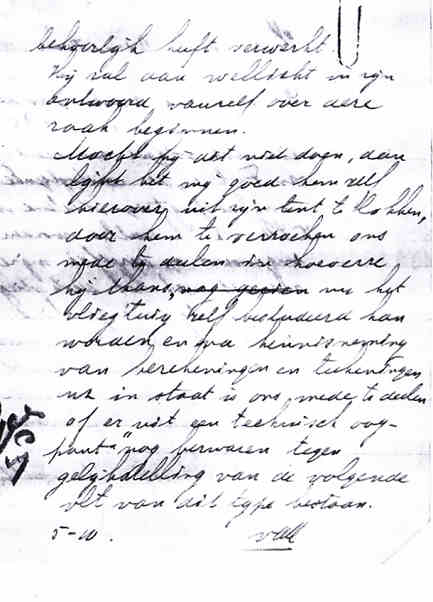 behoorlijk heeft verwerkt.
Hij zal dan wellicht in zijn
antwoord, vanzelf over deze
zaak beginnen.
Mocht hij dit niet doen, dan
lijkt het mij goed hem zelf
hierover uit zijn tent te lokken,
door hem te verzoeken ons
mede te deelen in hoeverre
hij thans, nog gezien nu het
vliegtuig zelf bestudeerd kan
worden en na kennisneming
van berekeningen en teekeningen
in staat is ons mede te deelen
of er uit een technisch oog-
punt" nog bezwaren tegen
gelijkstelling van de volgende
vlt van dit type bestaan.
5-10.